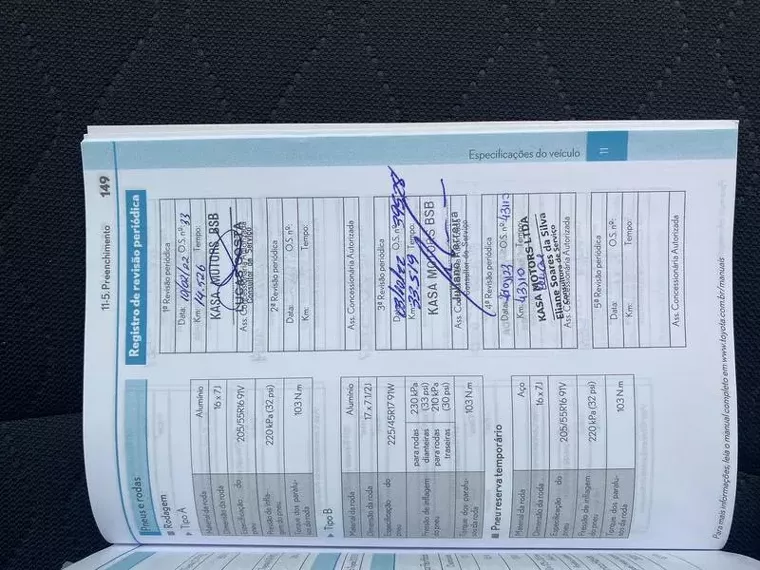 11-5. Preenchimento 149
Pneus e rodas
Rodagem
Tipo A
Material da roda Alumínio
Dimensão da roda 16 x 7J
Especificação do pneu 205/55R16 91V
Pressão de inflagem do pneu 220 kPa (32 psi)
Torque dos parafusos da roda 103 N.m
Tipo B
Material da roda Alumínio
Dimensão da roda 17 x 7.1/2J
Especificação do pneu 225/45R17 91W
Pressão de inflagem do pneu
para rodas dianteiras 230 kPa (33 psi)
para rodas traseiras 210 kPa (30 psi)
Torque dos parafusos da roda 103 N.m
Pneu reserva temporário
Material da roda Aço
Dimensão da roda 16 x 7J
Especificação do pneu 205/55R16 91V
Pressão de inflagem do pneu 220 kPa (32 psi)
Torque dos parafusos da roda 103 N.m
Registro de revisão periódica
1ª Revisão periódica
Data: O.S. nº: 33
Km: 14.526 Tempo:
KASA MOTORS BSB
LUCAS COSTA
Consultor de Serviço
Ass. Concessionária Autorizada
2ª Revisão periódica
Data: O.S. nº:
Km: Tempo:
Ass. Concessionária Autorizada
3ª Revisão periódica
Data: O.S. nº: 39528
Km: 33.519 Tempo:
KASA MOTORS BSB
Juliano Ferreira
Consultor de Serviço
4ª Revisão periódica
Data: O.S. nº: 43113
Km: 43110 Tempo:
KASA MOTORS LTDA
Eliane Soares da Silva
Consultora de Serviço
Ass. Concessionária Autorizada
5ª Revisão periódica
Data: O.S. nº:
Km: Tempo:
Ass. Concessionária Autorizada
Especificações do veículo
11
Para mais informações, leia o manual completo em www.toyota.com.br/manuais